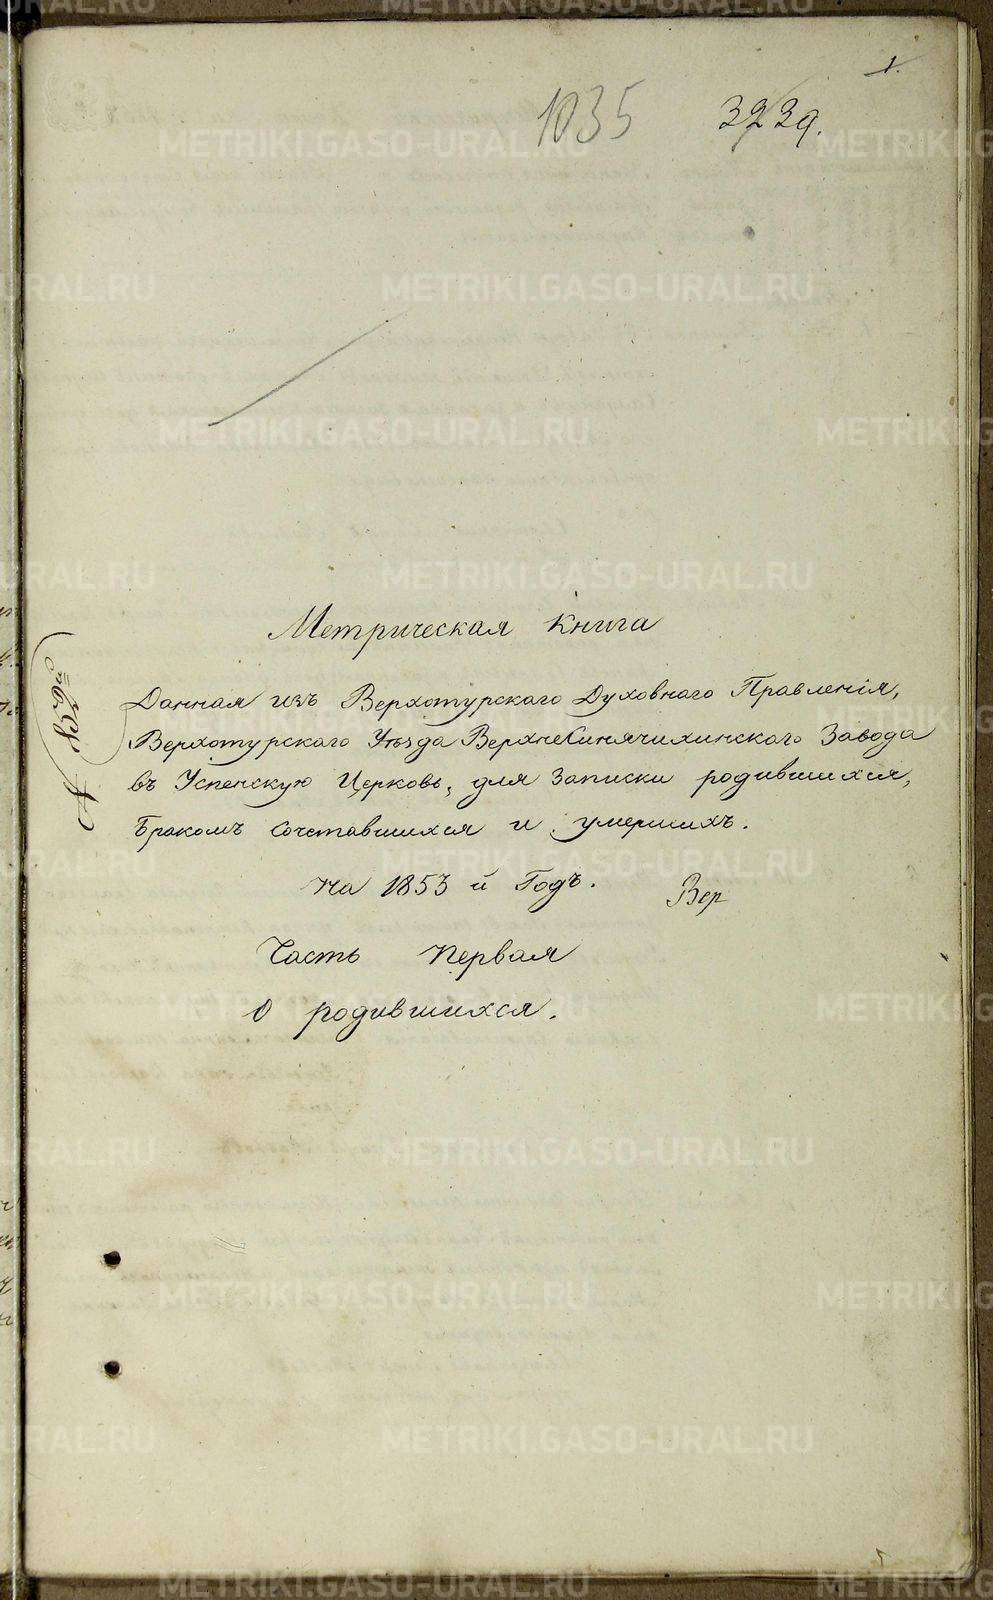 1.
1035 3239.
Метрическая Книга
Данная изъ Верхотурскаго Духовнаго Правленія,
Верхотурскаго Уѣзда ВерхнеСинячихинскаго Завода
въ Успенскую Церковь, для записки родившихся,
Бракомъ сочетавшихся и умершихъ.
На 1853 й Годъ. Вер
Часть Первая
О родившихся.
METRIKI.GASO-URAL.RU